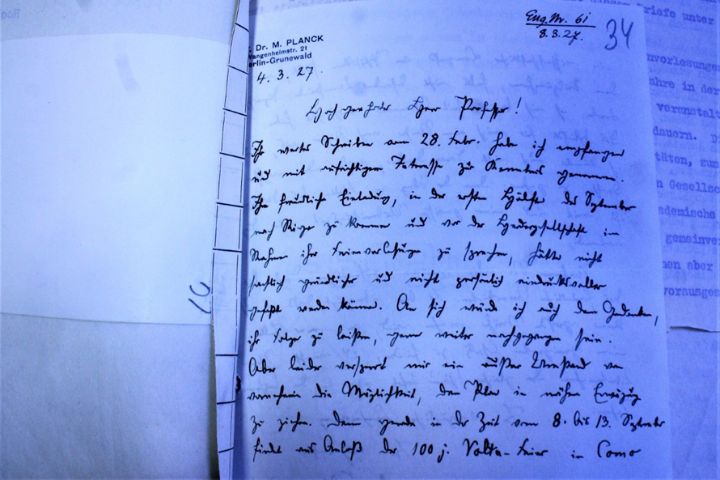 Eing. Nr. 61
8.3.27.
34
Dr. M. PLANCK
Wangenheimstr. 21
Berlin-Grunewald
4.3.27.
Hochverehrter Herr Professor!
Ihr wertes Schreiben vom 28. Febr. habe ich empfangen
und mit aufrichtigem Interesse zur Kenntnis genommen.
Ihre freundliche Einladung, in der ersten Hälfte des September
nach Riga zu kommen und vor der Herdergesellschaft im
Rahmen ihrer Ferienvorlesungen zu sprechen, hätte nicht
sachlich gründlicher und nicht persönlich eindrucksvoller
gefaßt werden können. An sich würde ich auch dem Gedanken,
ihr Folge zu leisten, gern weiter nachgegangen sein.
Aber leider versperrt mir ein äußerer Umstand von
vornherein die Möglichkeit, den Plan in nähere Erwägung
zu ziehen. Denn gerade in der Zeit vom 8. bis 13. September
findet aus Anlaß der 100 j. Volta-Feier in Como
Briefe unter
vorlesungen
Jahre in der
veranstalt
dauern.
Gesellsc
ademische
gemeinver
aber
vorausges